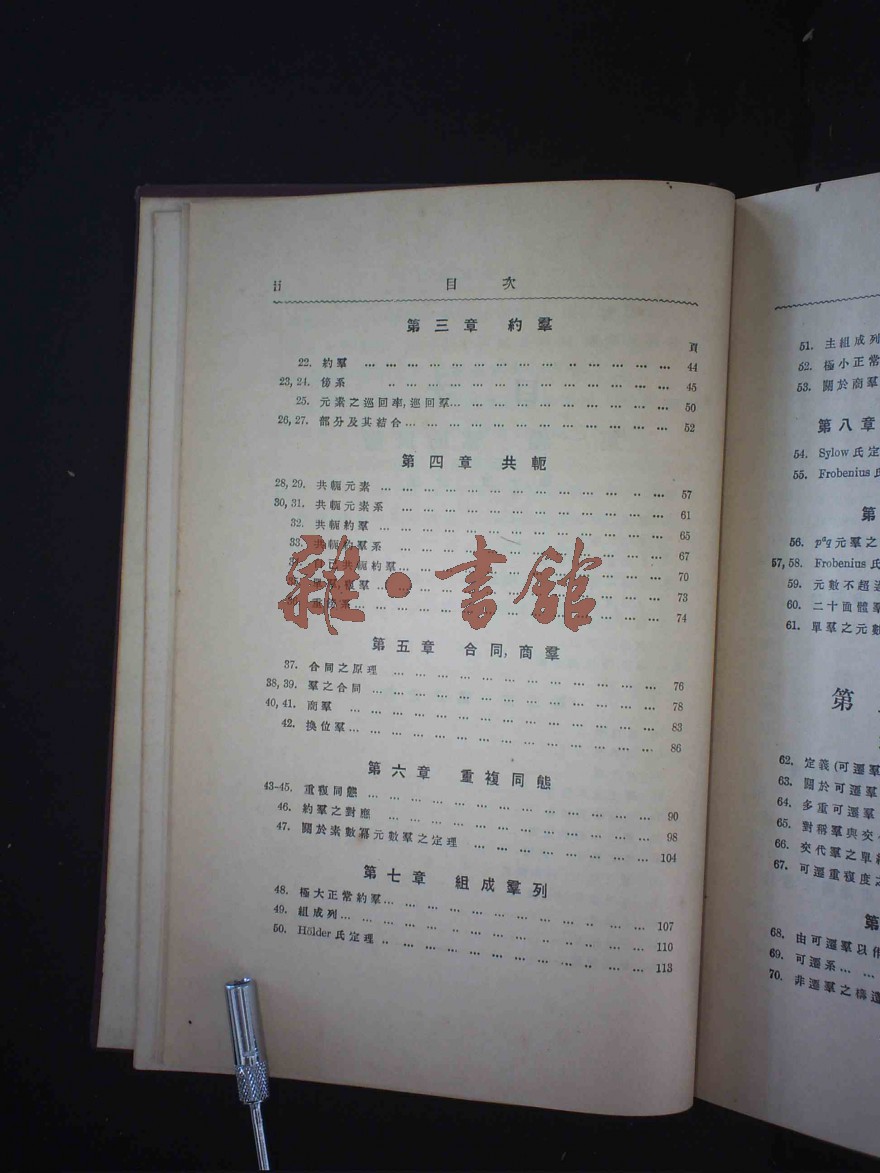 ii 目次
第三章 約羣
頁
22. 約羣 ... 44
23, 24. 傍系 ... 45
25. 元素之巡回率, 巡回羣... 50
26, 27. 部分及其結合... 52
第四章 共軛
28, 29. 共軛元素 ... 57
30, 31. 共軛元素系 ... 61
32. 共軛約羣 ... 65
33. 共軛約羣系 ... 67
自己共軛約羣... 70
單羣, 複羣 ... 73
74
第五章 合同, 商羣
37. 合同之原理 ... 76
38, 39. 羣之合同 ... 78
40, 41. 商羣 ... 83
42. 換位羣... 86
第六章 重複同態
43-45. 重複同態 ... 90
46. 約羣之對應 ... 98
47. 關於素數冪元數羣之定理 ... 104
第七章 組成羣列
48. 極大正常約羣... 107
49. 組成列... 110
50. Hölder 氏定理 ... 113
雜·書館
51. 主組成列
52. 極小正常
53. 關於商羣
第八章
54. Sylow 氏定
55. Frobenius 氏
第
56. pᵅq 元羣之
57, 58. Frobenius 氏
59. 元數不超過
60. 二十面體羣
61. 單羣之元數
第
62. 定義 (可遷羣
63. 關於可遷羣
64. 多重可遷羣
65. 對稱羣與交
66. 交代羣之單
67. 可遷重複度
第
68. 由可遷羣以作
69. 可遷系... ...
70. 非遷羣之構造